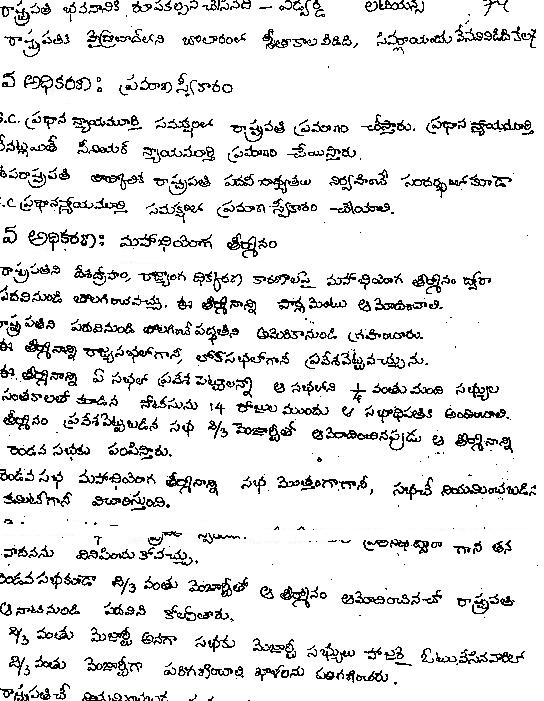 రాష్ట్రపతి భవనానికి రూపకల్పన చేసినది - ఎడ్వర్డ్ లుటియన్స్
రాష్ట్రపతికి హైదరాబాద్‌లోని బొలారంలో శీతాకాల విడిది, సిమ్లాయందు వేసవివిడిది కలదు
వ అధికరణ: ప్రమాణ స్వీకారం
S.C. ప్రధాన న్యాయమూర్తి సమక్షంలో రాష్ట్రపతి ప్రమాణం చేస్తారు. ప్రధాన న్యాయమూర్తి
లేనట్లయితే సీనియర్ న్యాయమూర్తి ప్రమాణం చేయిస్తారు.
ఉపరాష్ట్రపతి తాత్కాలిక రాష్ట్రపతి పదవీ బాధ్యతలు నిర్వహించే సందర్భంలో కూడా
S.C ప్రధానన్యాయమూర్తి సమక్షంలో ప్రమాణ స్వీకారం చేయాలి.
వ అధికరణ: మహాభియోగ తీర్మానం
రాష్ట్రపతిని దేశద్రోహం, రాజ్యాంగ ధిక్కరణ కారణాలపై మహాభియోగ తీర్మానం ద్వారా
పదవినుండి తొలగించవచ్చు. ఈ తీర్మానాన్ని పార్లమెంటు ఆమోదించాలి.
రాష్ట్రపతిని పదవినుండి తొలగించే పద్ధతిని అమెరికానుండి గ్రహించారు.
ఈ తీర్మానాన్ని రాజ్యసభలోగానీ, లోక్‌సభలోగానీ ప్రవేశపెట్టవచ్చును.
ఈ తీర్మానాన్ని ఏ సభలో ప్రవేశ పెట్టాలన్నా ఆ సభలోని 1/4 వంతు మంది సభ్యుల
సంతకాలతో కూడిన నోటీసును 14 రోజుల ముందు ఆ సభాధిపతికి అందించాలి.
తీర్మానం ప్రవేశపెట్టబడిన సభ 2/3 మెజార్టీతో ఆమోదించినప్పుడు ఆ తీర్మానాన్ని
రెండవ సభకు పంపిస్తారు.
రెండవ సభ మహాభియోగ తీర్మానాన్ని సభ మొత్తంగాగానీ, సభచే నియమించబడిన
కమిటీగానీ విచారిస్తుంది.
ద్వారా గానీ తన
వాదనను వినిపించు కోవచ్చు.
రెండవసభకూడా 2/3 వంతు మెజార్టీతో ఆ తీర్మానం ఆమోదించినచో రాష్ట్రపతి
ఆనాటినుండి పదవిని కోల్పోతారు.
2/3 వంతు మెజార్టీ అనగా సభకు మెజార్టీ సభ్యులు హాజరై ఓటువేసినవారిలో
2/3 వంతు మెజార్టీగా పరిగణించాలి ఖాళీలను పరిగణించరు.
రాష్ట్రపతిచే